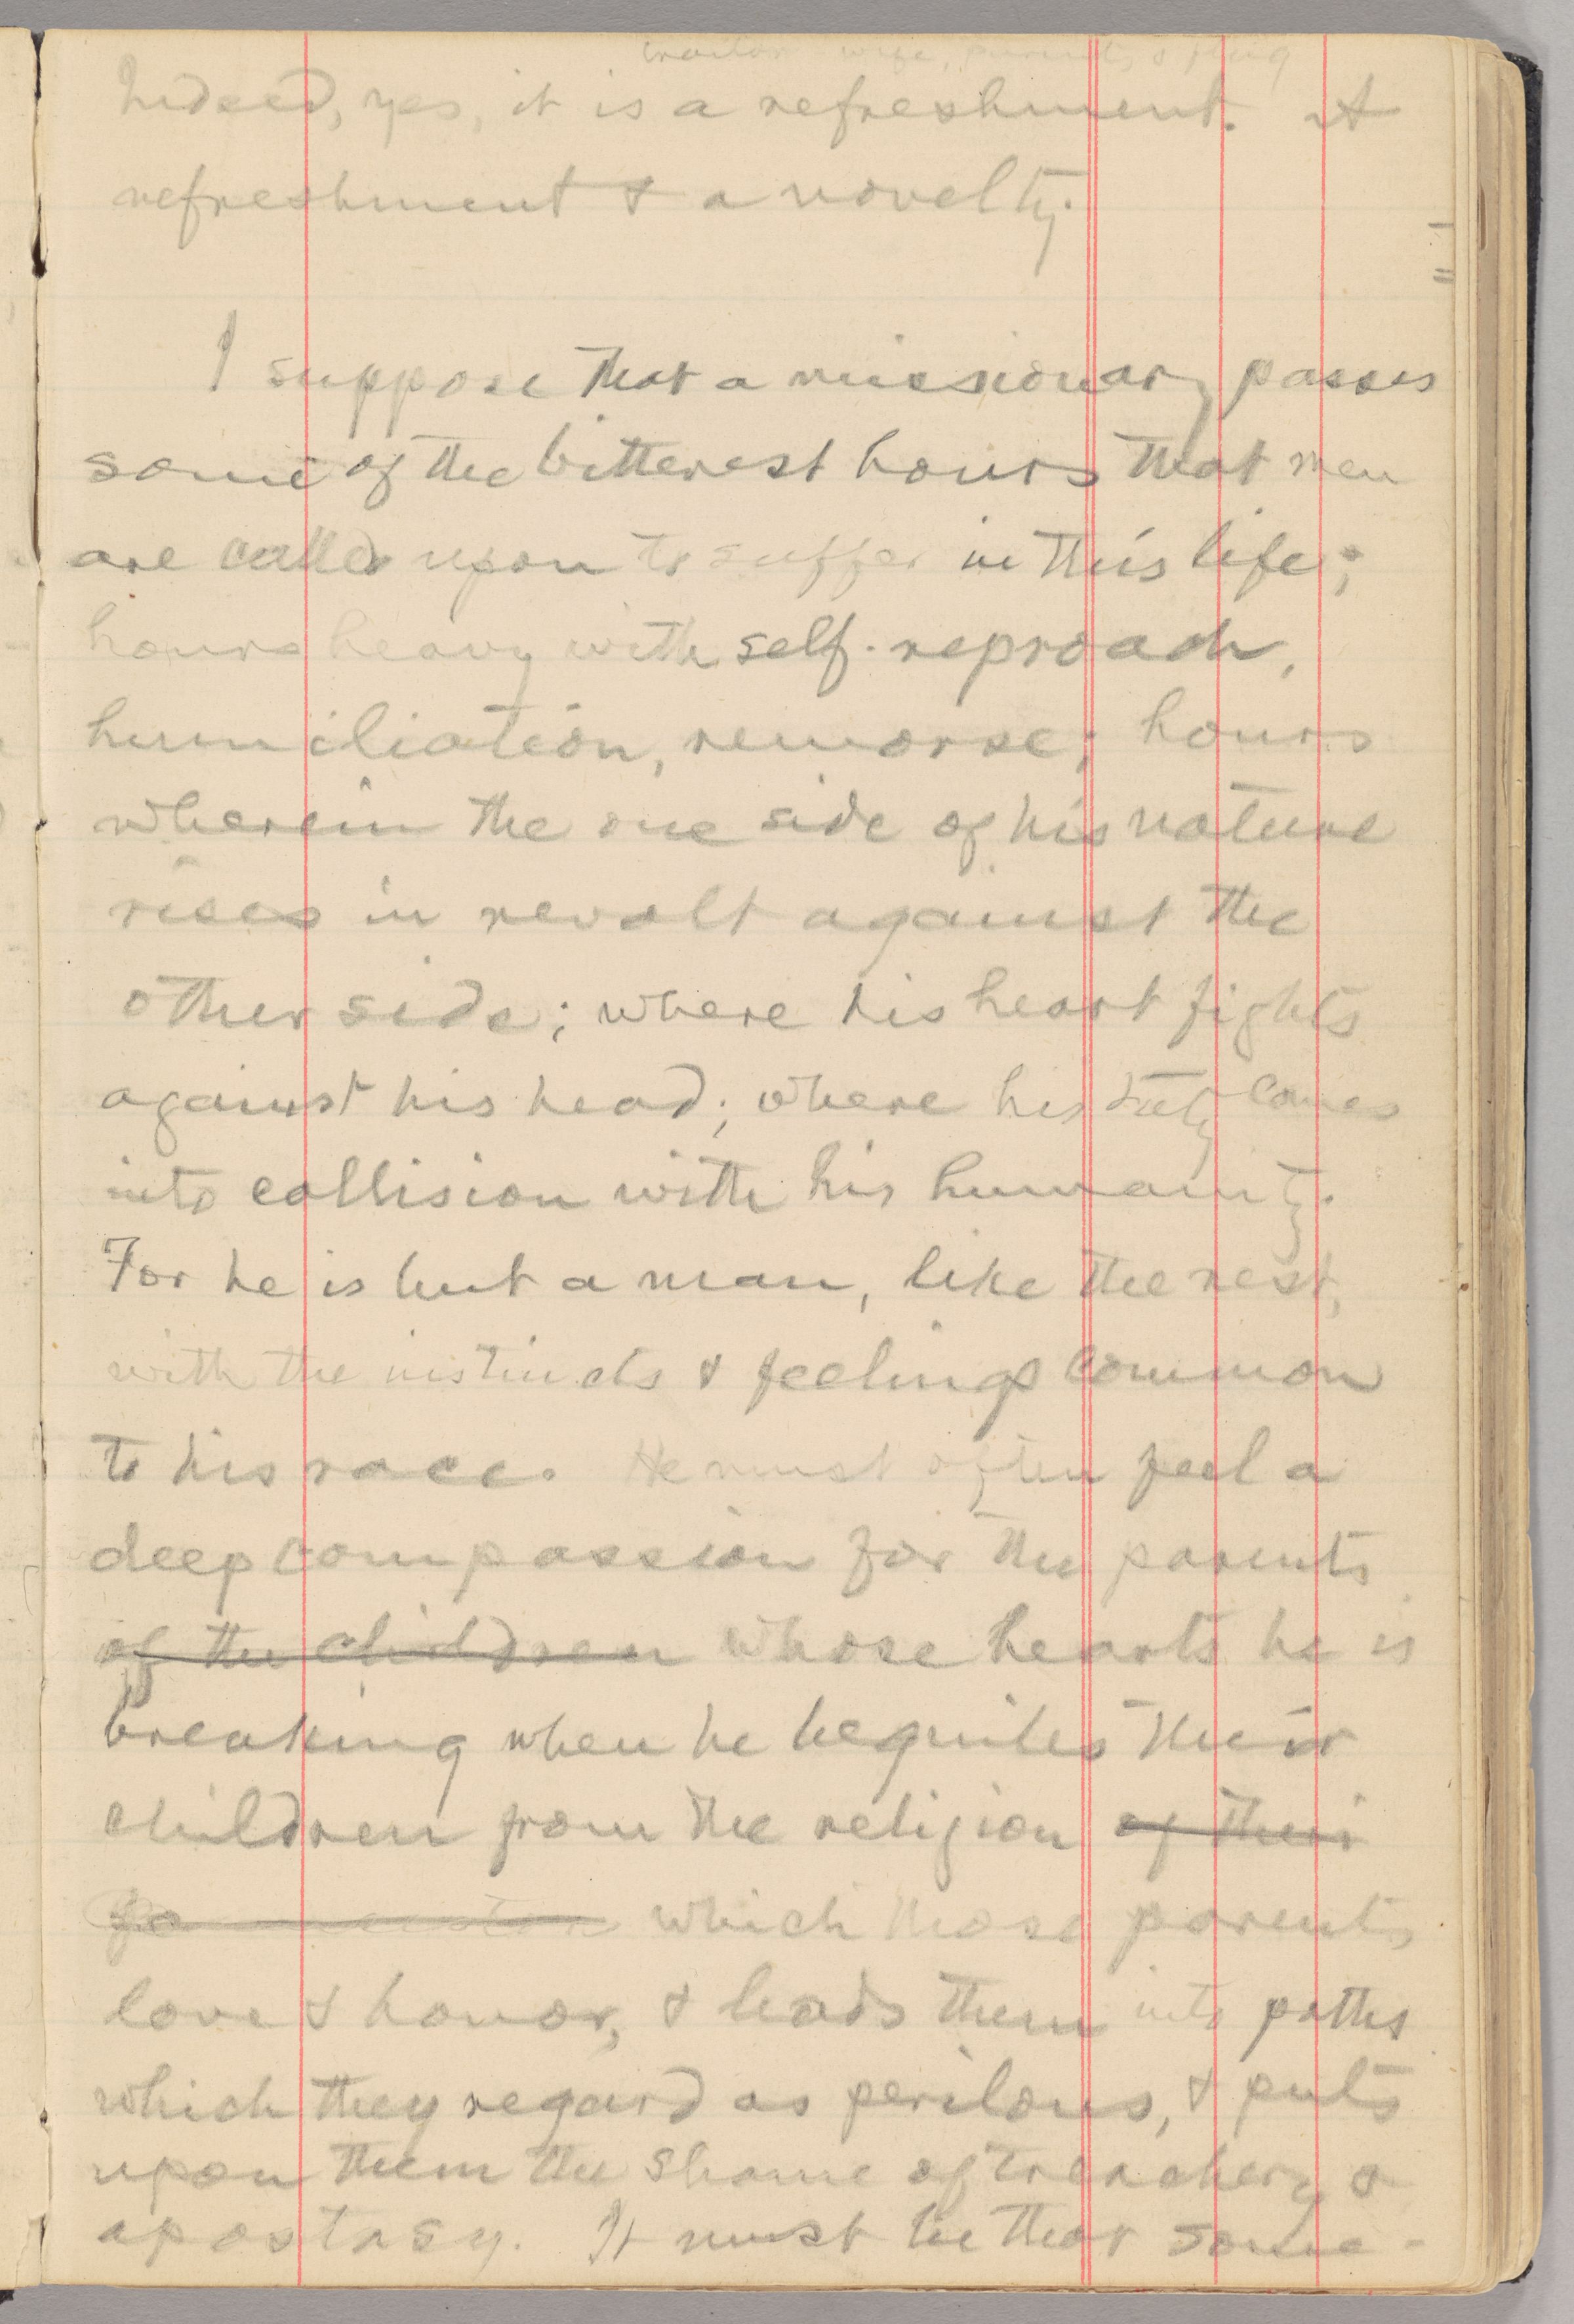 wife, parents &
Indeed, yes, it is a refreshment. A
refreshment & a novelty.
I suppose that a missionary passes
some of the bitterest hours that men
are called upon to suffer in this life;
hours heavy with self-reproach,
humiliation, remorse; hours
wherein the one side of his nature
rises in revolt against the
other side; where his heart fights
against his head; where his duty comes
into collision with his humanity.
For he is but a man, like the rest,
with the instincts & feelings common
to his race. He must often feel a
deep compassion for the parents
of the children whose hearts he is
breaking when he beguiles their
children from the religion of their
which those parents
love & honor, & leads them into paths
which they regard as perilous, & puts
upon them the shame of treachery &
apostasy. It must be that some-